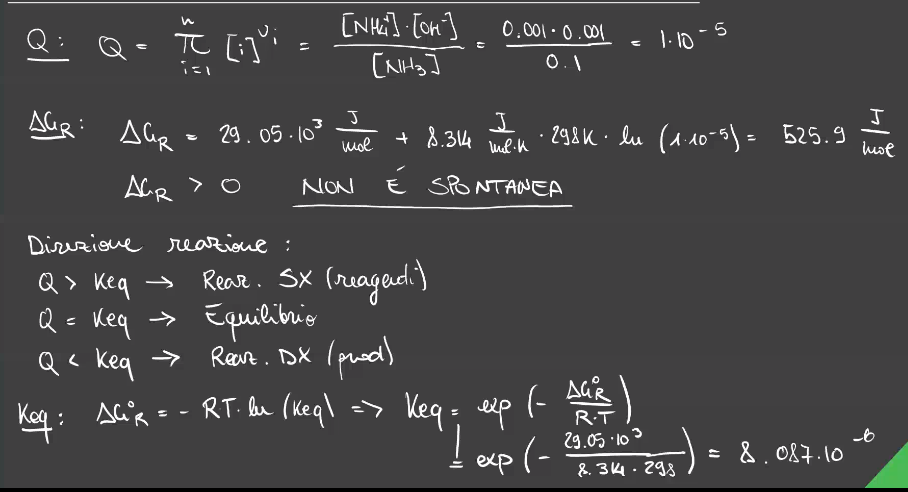 Q: Q = π i=1 n [i]^νi = [NH4+]·[OH-] / [NH3] = 0.001·0.001 / 0.1 = 1·10^-5
ΔGR: ΔGR = 29.05·10^3 J/mol + 8.314 J/mol·K · 298K · ln (1·10^-5) = 525.9 J/mol
ΔGR > 0 NON É SPONTANEA
Direzione reazione :
Q > Keq → Reaz. SX (reagenti)
Q = Keq → Equilibrio
Q < Keq → Reaz. DX (prod)
Keq: ΔG°R = - RT·ln (Keq) => Keq = exp (- ΔG°R / R·T)
= exp (- 29.05·10^3 / 8.314·298) = 8.087·10^-6